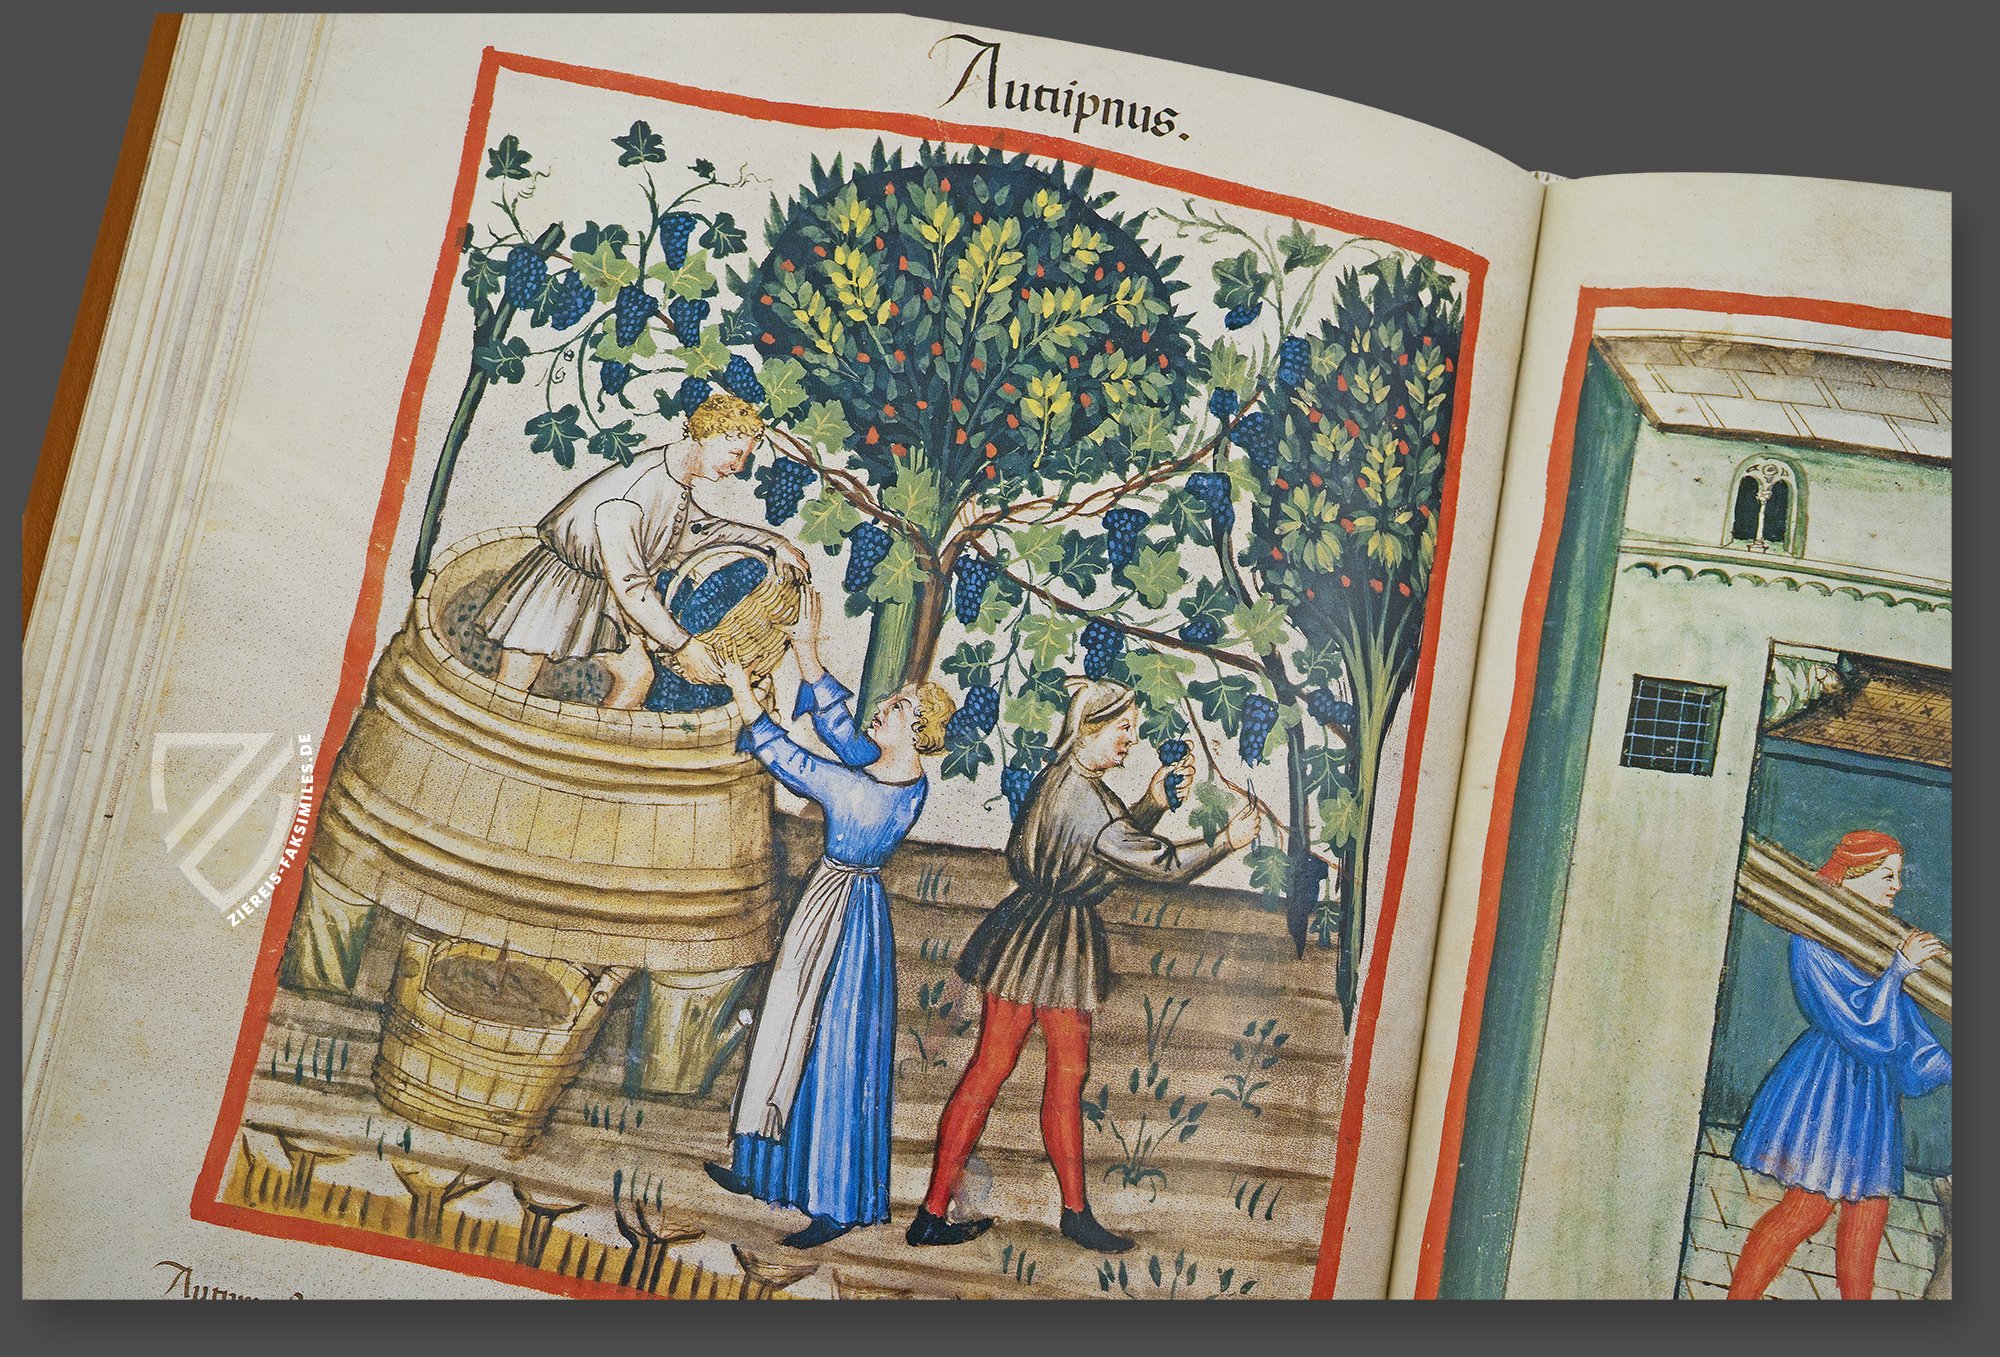 Autūpnus.
ZIEREIS-FAKSIMILES.DE